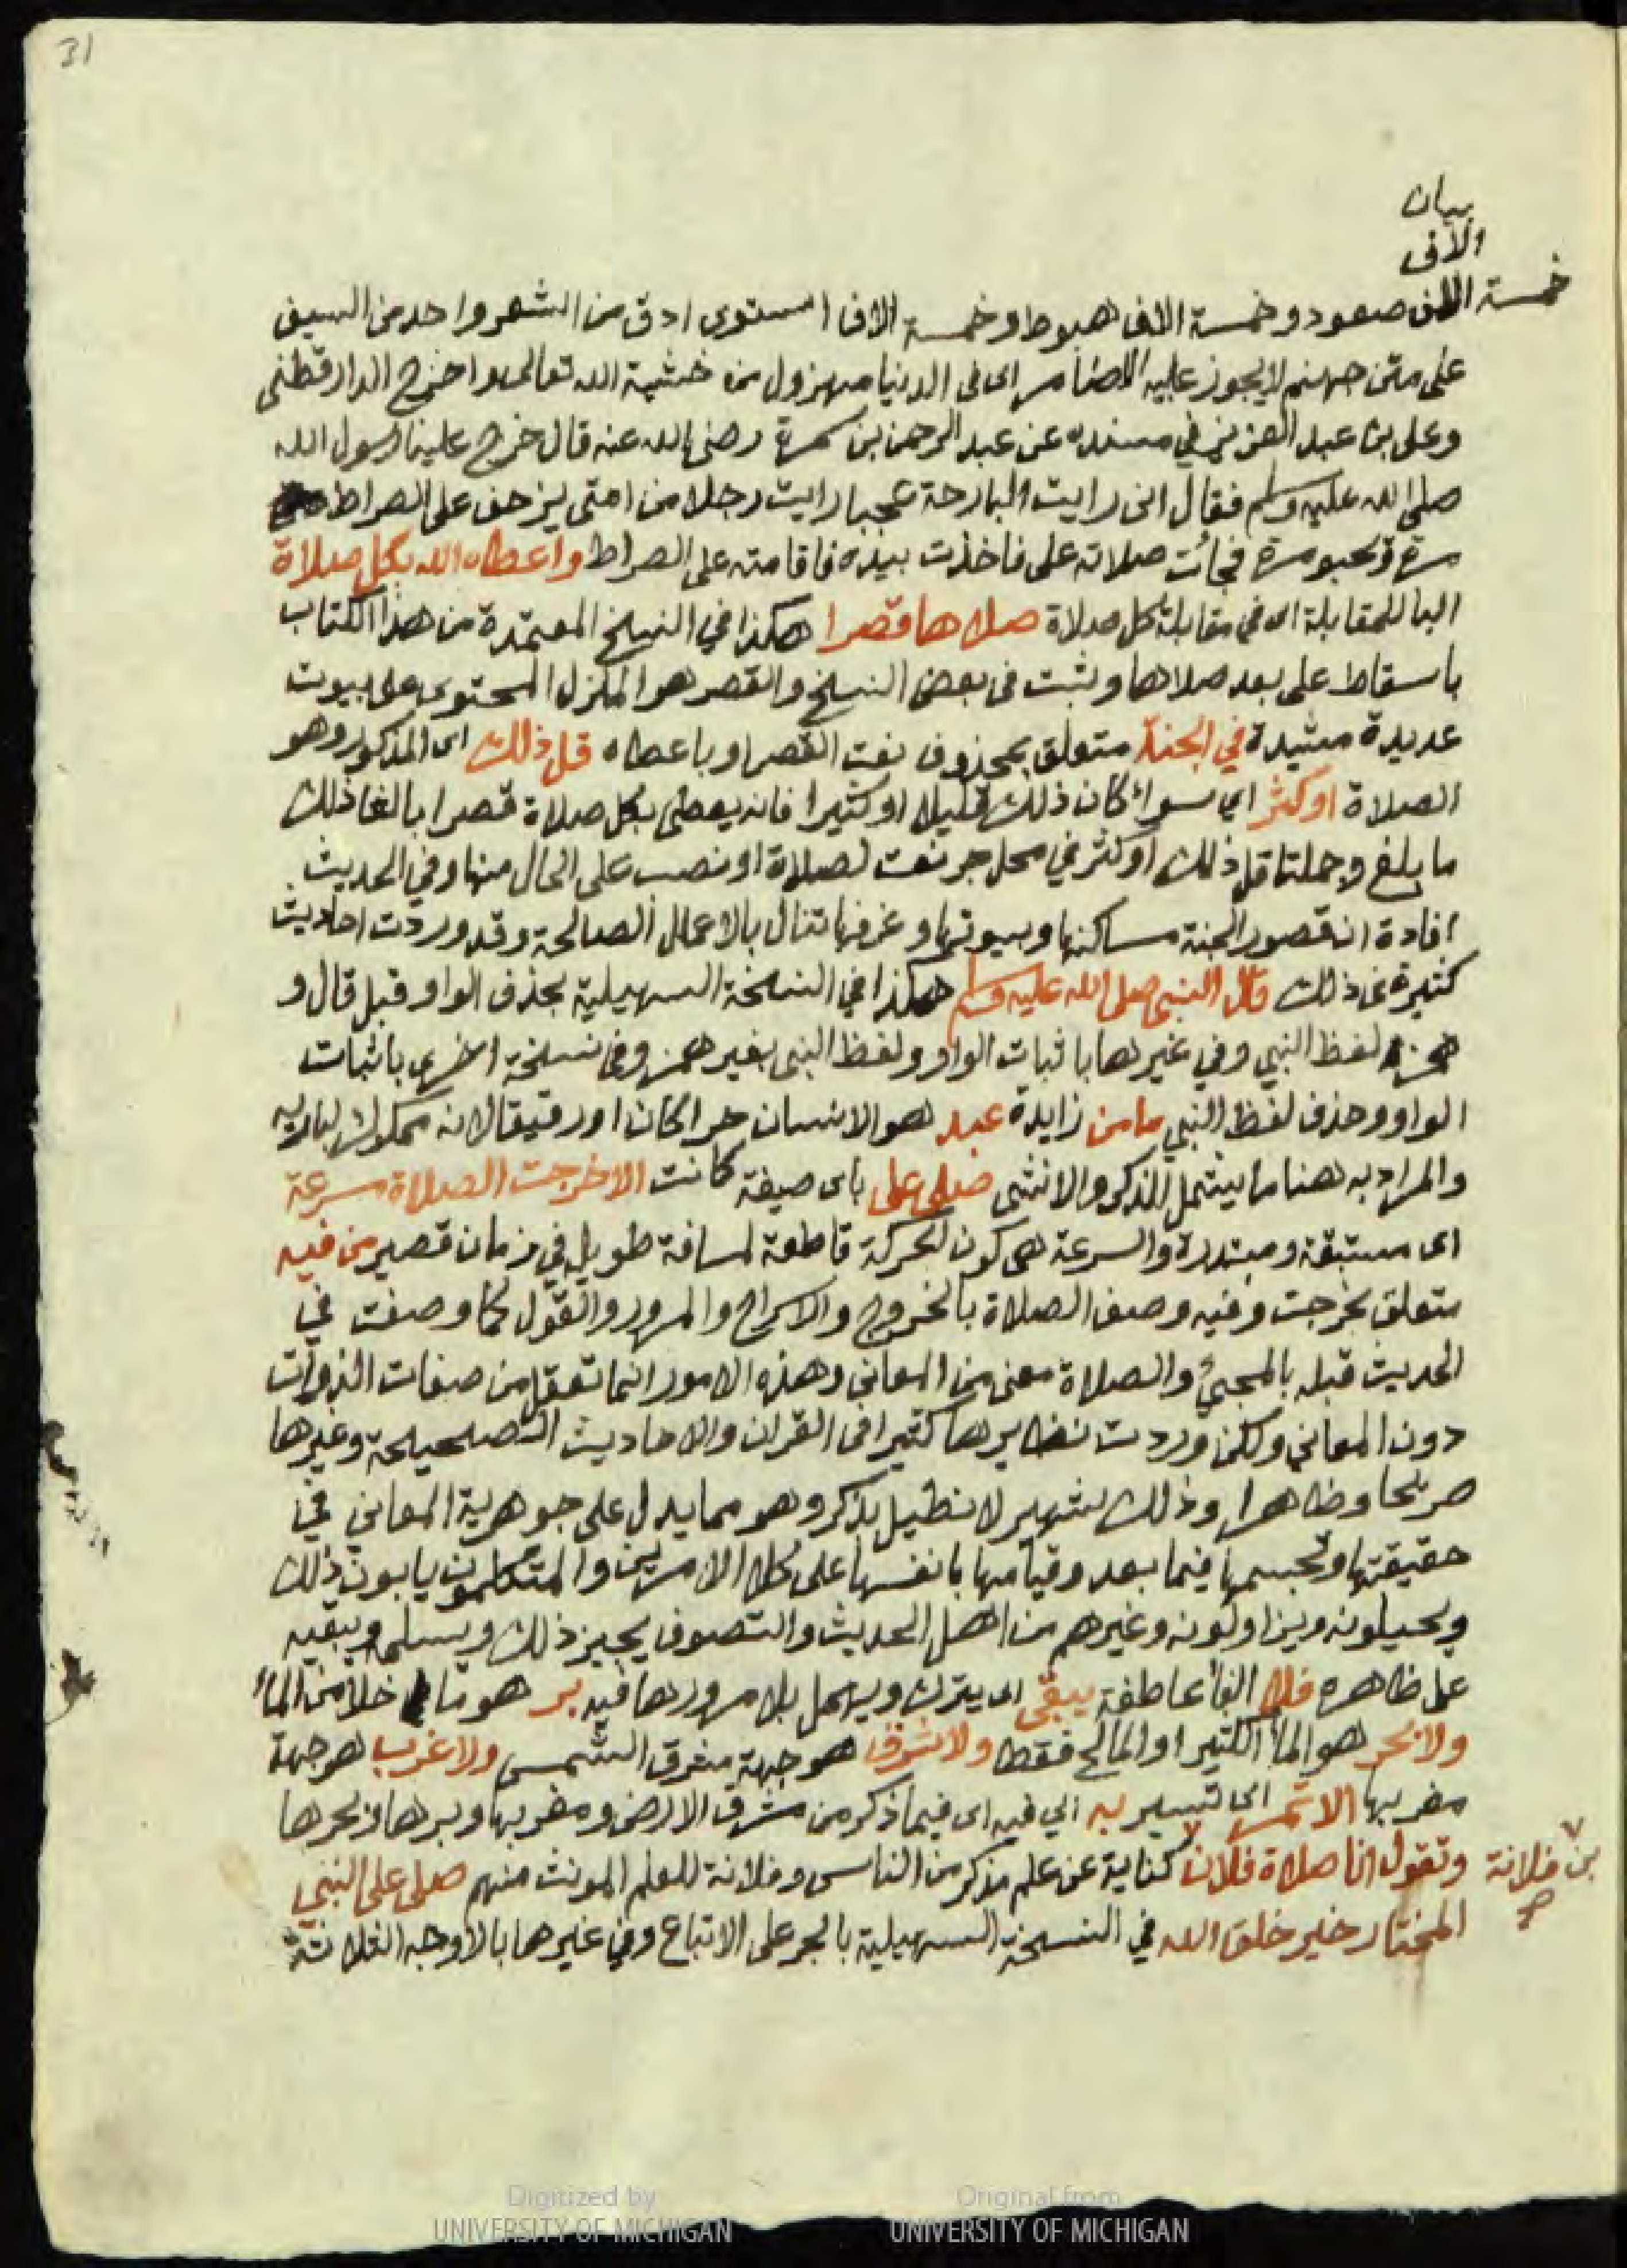 31
بيان
الاف
خمسة الاف صعود وخمسة الاف هبوط وخمسة الاف استوى ادق من الشعر واحد من السيف
على متن جهنم لا يجوز عليه الاضامر اى فى الدنيا مهزول من خشية الله تعالى واخرج الدارقطنى
وعلى بن عبد العزيز في مسنده عن عبد الرحمن بن سمرة رضى الله عنه قال خرج علينا رسول الله
صلى الله عليه وسلم فقال انى رايت البارحة عجبا رايت رجلا من امتى يزحف على الصراط
مرة ويحبو مرة فجائت صلاته على فاخذت بيده فاقامته على الصراط واعطاه الله بكل صلاة
البا للمقابلة اى في مقابلة كل صلاة صلاها قصرا هكذا في النسخ المعتمدة من هذا الكتاب
باسقاط على بعد صلاها وثبت فى بعض النسخ والقصر هو المنزل المحتوى على بيوت
عديدة مشيدة في الجنة متعلق بمحذوف نعت القصر او باعطاه قل ذلك اى المذكور وهو
الصلاة او كثر اي سواء كان ذلك قليلا او كثيرا فانه يعطى بكل صلاة قصرا بالغا ذلك
ما بلغ وجملتا قل ذلك او كثر في محل جر نعت لصلاة او نصب على الحال منها وفي الحديث
افادة ان قصور الجنة مساكنها وبيوتها وغرفها تنال بالاعمال الصالحة وقد وردت احاديث
كثيرة فى ذلك قال النبى صلى الله عليه وسلم هكذا في النسخة السهيلية بحذف الواو قبل قال و
همز لفظ النبي وفي غيرها باثبات الواو ولفظ النبى بغير همز وفى نسخة اخرى باثبات
الواو وحذف لفظ النبي ما من زايدة عبد هو الانسان حرا كان او رقيقا لانه مملوك لباريه
والمراد به هنا ما يشمل الذكر والانثى صلى على باى صيغة كانت الا خرجت الصلاة مسرعة
اى مستبقة ومبتدرة والسرعة هى كون الحركة قاطعة لمسافة طويلة في زمان قصير من فيه
متعلق بخرجت وفيه وصف الصلاة بالخروج والاسراع والمرور والقول كما وصفت في
الحديث قبله بالمجيئ والصلاة معنى من المعاني وهذه الامور انما تعقل من صفات الذوات
دون المعاني ولكن وردت نظايرها كثيرا فى القران والاحاديث الصحيحة وغيرها
صريحا وظاهرا وذلك شهير لا نطيل بذكره وهو مما يدل على جوهرية المعانى في
حقيقتها وتجسمها فيما بعد وقيامها بانفسها على كلا الامرين والمتكلمون يابون ذلك
ويحيلونه ويزاولونه وغيرهم من اهل الحديث والتصوف يجيز ذلك ويسلمه ويبقيه
على ظاهره فلا الفاء عاطفة يبقى اى يترك ويهمل بلا مرورها فيه بر هو ما خلا من الماء
ولا بحر هو الماء الكثير او المالح فقط ولا شرق هو جهة مشرق الشمس ولا غرب هو جهة
مغربها الا تمر اى تسير به اي فيه اى فيما ذكر من مشرق الارض ومغربها وبرها وبحرها
وتقول انا صلاة فلان كناية عن علم مذكر من الناس وفلانة للعلم المونث منهم صلى على النبى
بن فلانة
المختار خير خلق الله في النسخة السهيلية بالجر على الاتباع وفي غيرها بالاوجه الثلاثة
Digitized by
UNIVERSITY OF MICHIGAN
Original from
UNIVERSITY OF MICHIGAN